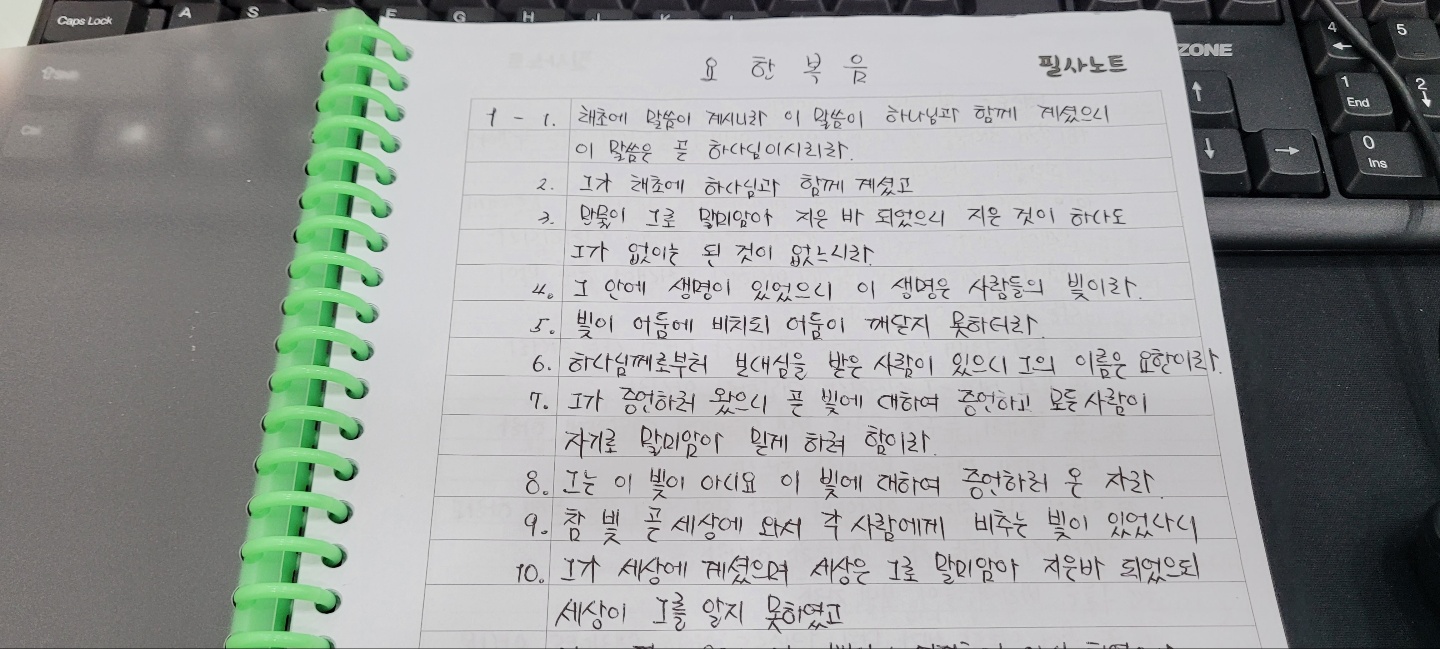 Caps Lock A S D F G H J K L
ZONE
4 5
1 End 2
0 Ins
요한복음 필사노트
1 - 1. 태초에 말씀이 계시니라 이 말씀이 하나님과 함께 계셨으니
이 말씀은 곧 하나님이시리라.
2. 그가 태초에 하나님과 함께 계셨고
3. 만물이 그로 말미암아 지은 바 되었으니 지은 것이 하나도
그가 없이는 된 것이 없느니라.
4. 그 안에 생명이 있었으니 이 생명은 사람들의 빛이라.
5. 빛이 어둠에 비치되 어둠이 깨닫지 못하더라.
6. 하나님께로부터 보내심을 받은 사람이 있으니 그의 이름은 요한이라.
7. 그가 증언하러 왔으니 곧 빛에 대하여 증언하고 모든 사람이
자기로 말미암아 믿게 하려 함이라.
8. 그는 이 빛이 아니요 이 빛에 대하여 증언하러 온 자라.
9. 참 빛 곧 세상에 와서 각 사람에게 비추는 빛이 있었나니
10. 그가 세상에 계셨으며 세상은 그로 말미암아 지은바 되었으되
세상이 그를 알지 못하였고